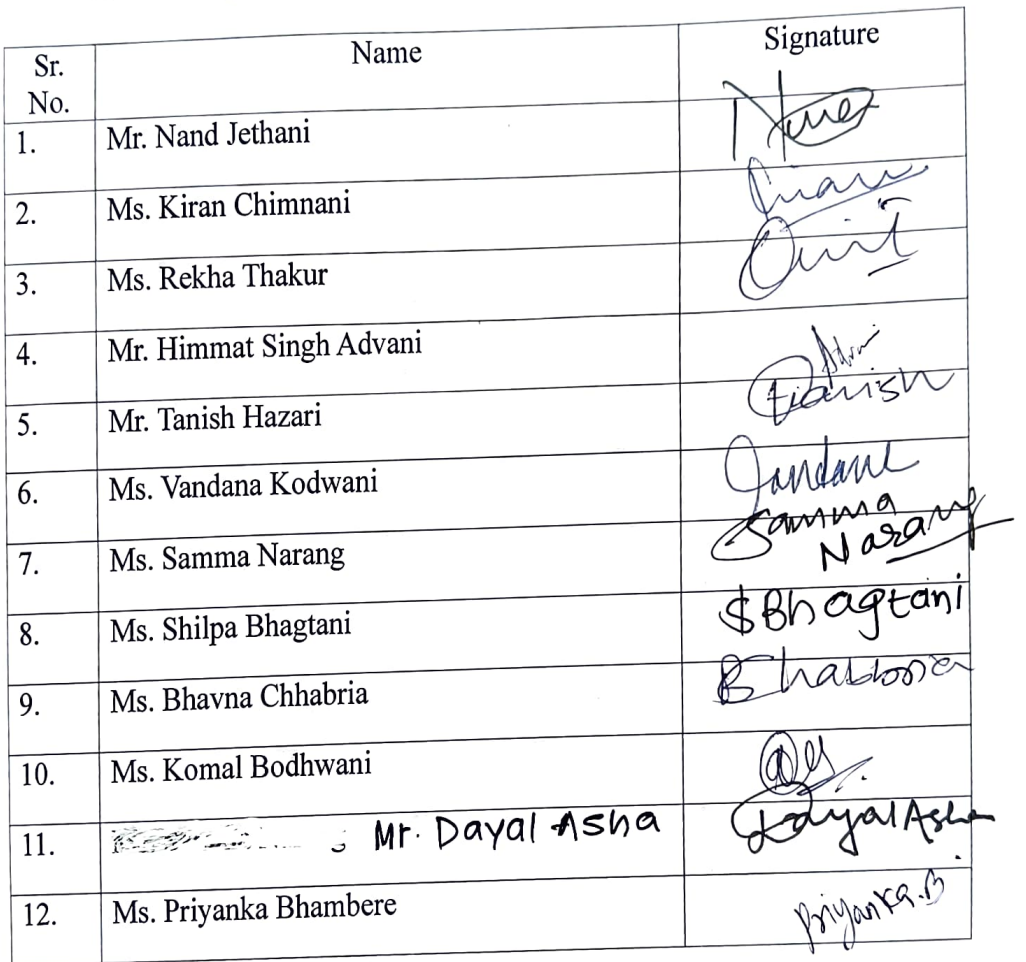 Sr. No. Name Signature
1. Mr. Nand Jethani
2. Ms. Kiran Chimnani
3. Ms. Rekha Thakur
4. Mr. Himmat Singh Advani
5. Mr. Tanish Hazari Tanish
6. Ms. Vandana Kodwani
7. Ms. Samma Narang Samma Narang
8. Ms. Shilpa Bhagtani SBhagtani
9. Ms. Bhavna Chhabria
10. Ms. Komal Bodhwani
11. Mr. Dayal Asha Dayal Asha
12. Ms. Priyanka Bhambere Priyanka.B